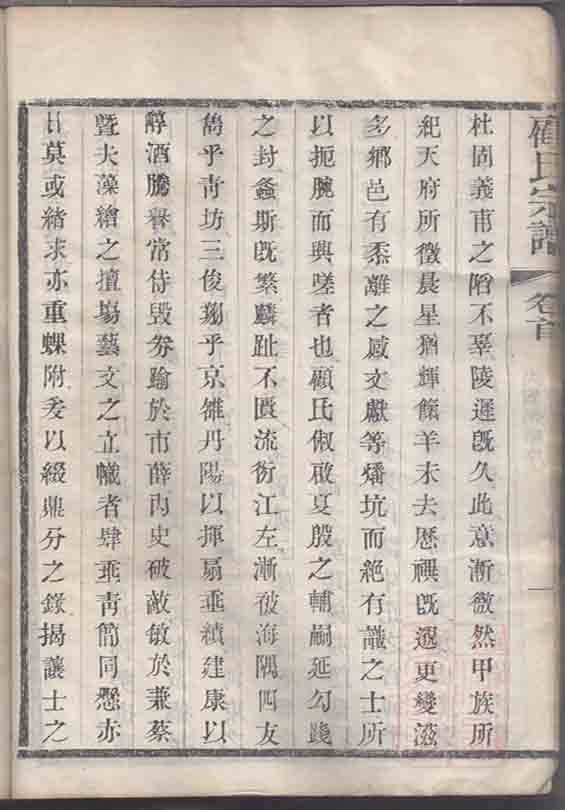 顧氏宗譜
卷首
一
杜固義甫之蹈不辜陵遲既久此意漸微然甲族所
紀天府所徵晨星猶輝餼羊未去歷禩既遐更變滋
多鄉邑有黍離之感文獻等燔坑而絕有識之士所
以扼腕而興嗟者也顧氏俶啟夏殷之輔嗣延勾踐
之封螽斯既繁麟趾不匱流衍江左漸被海隅四友
雋乎青坊三俊翔乎京雒丹陽以揮扇垂績建康以
醇酒騰譽常侍毀券踰於市薛內史破敵敏於兼蔡
暨夫藻繪之擅場藝文之立幟者肆乖青簡同懸赤
日莫或緒求亦重蜾附爰以綴鼎分之錄揭讓士之